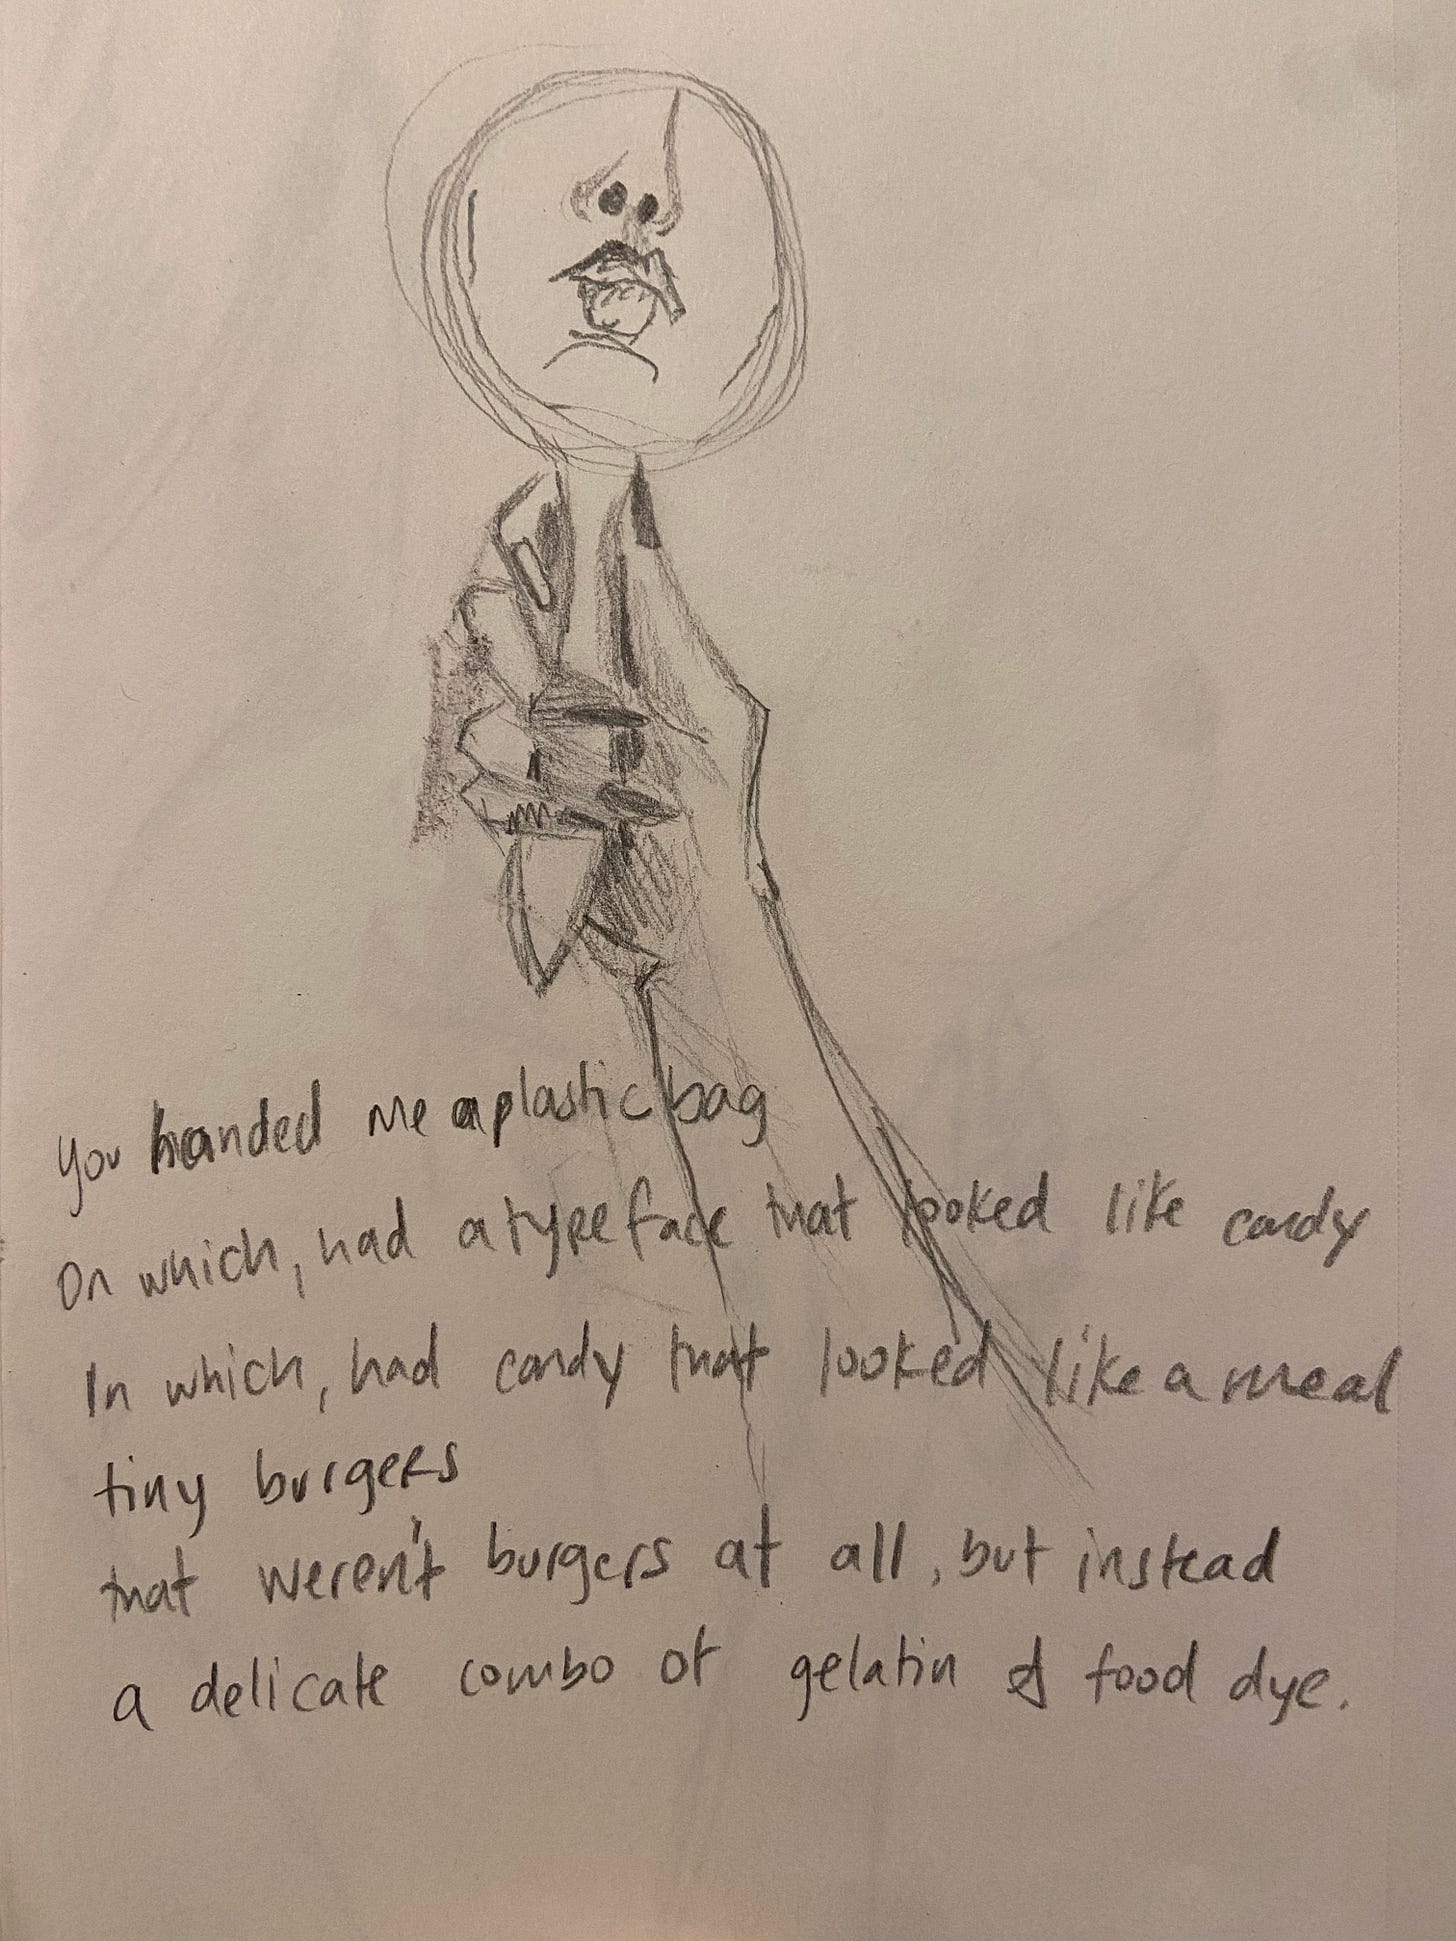 you handed me a plastic bag
On which, had a typeface that looked like candy
In which, had candy that looked like a meal
tiny burgers
that weren't burgers at all, but instead
a delicate combo of gelatin & food dye.